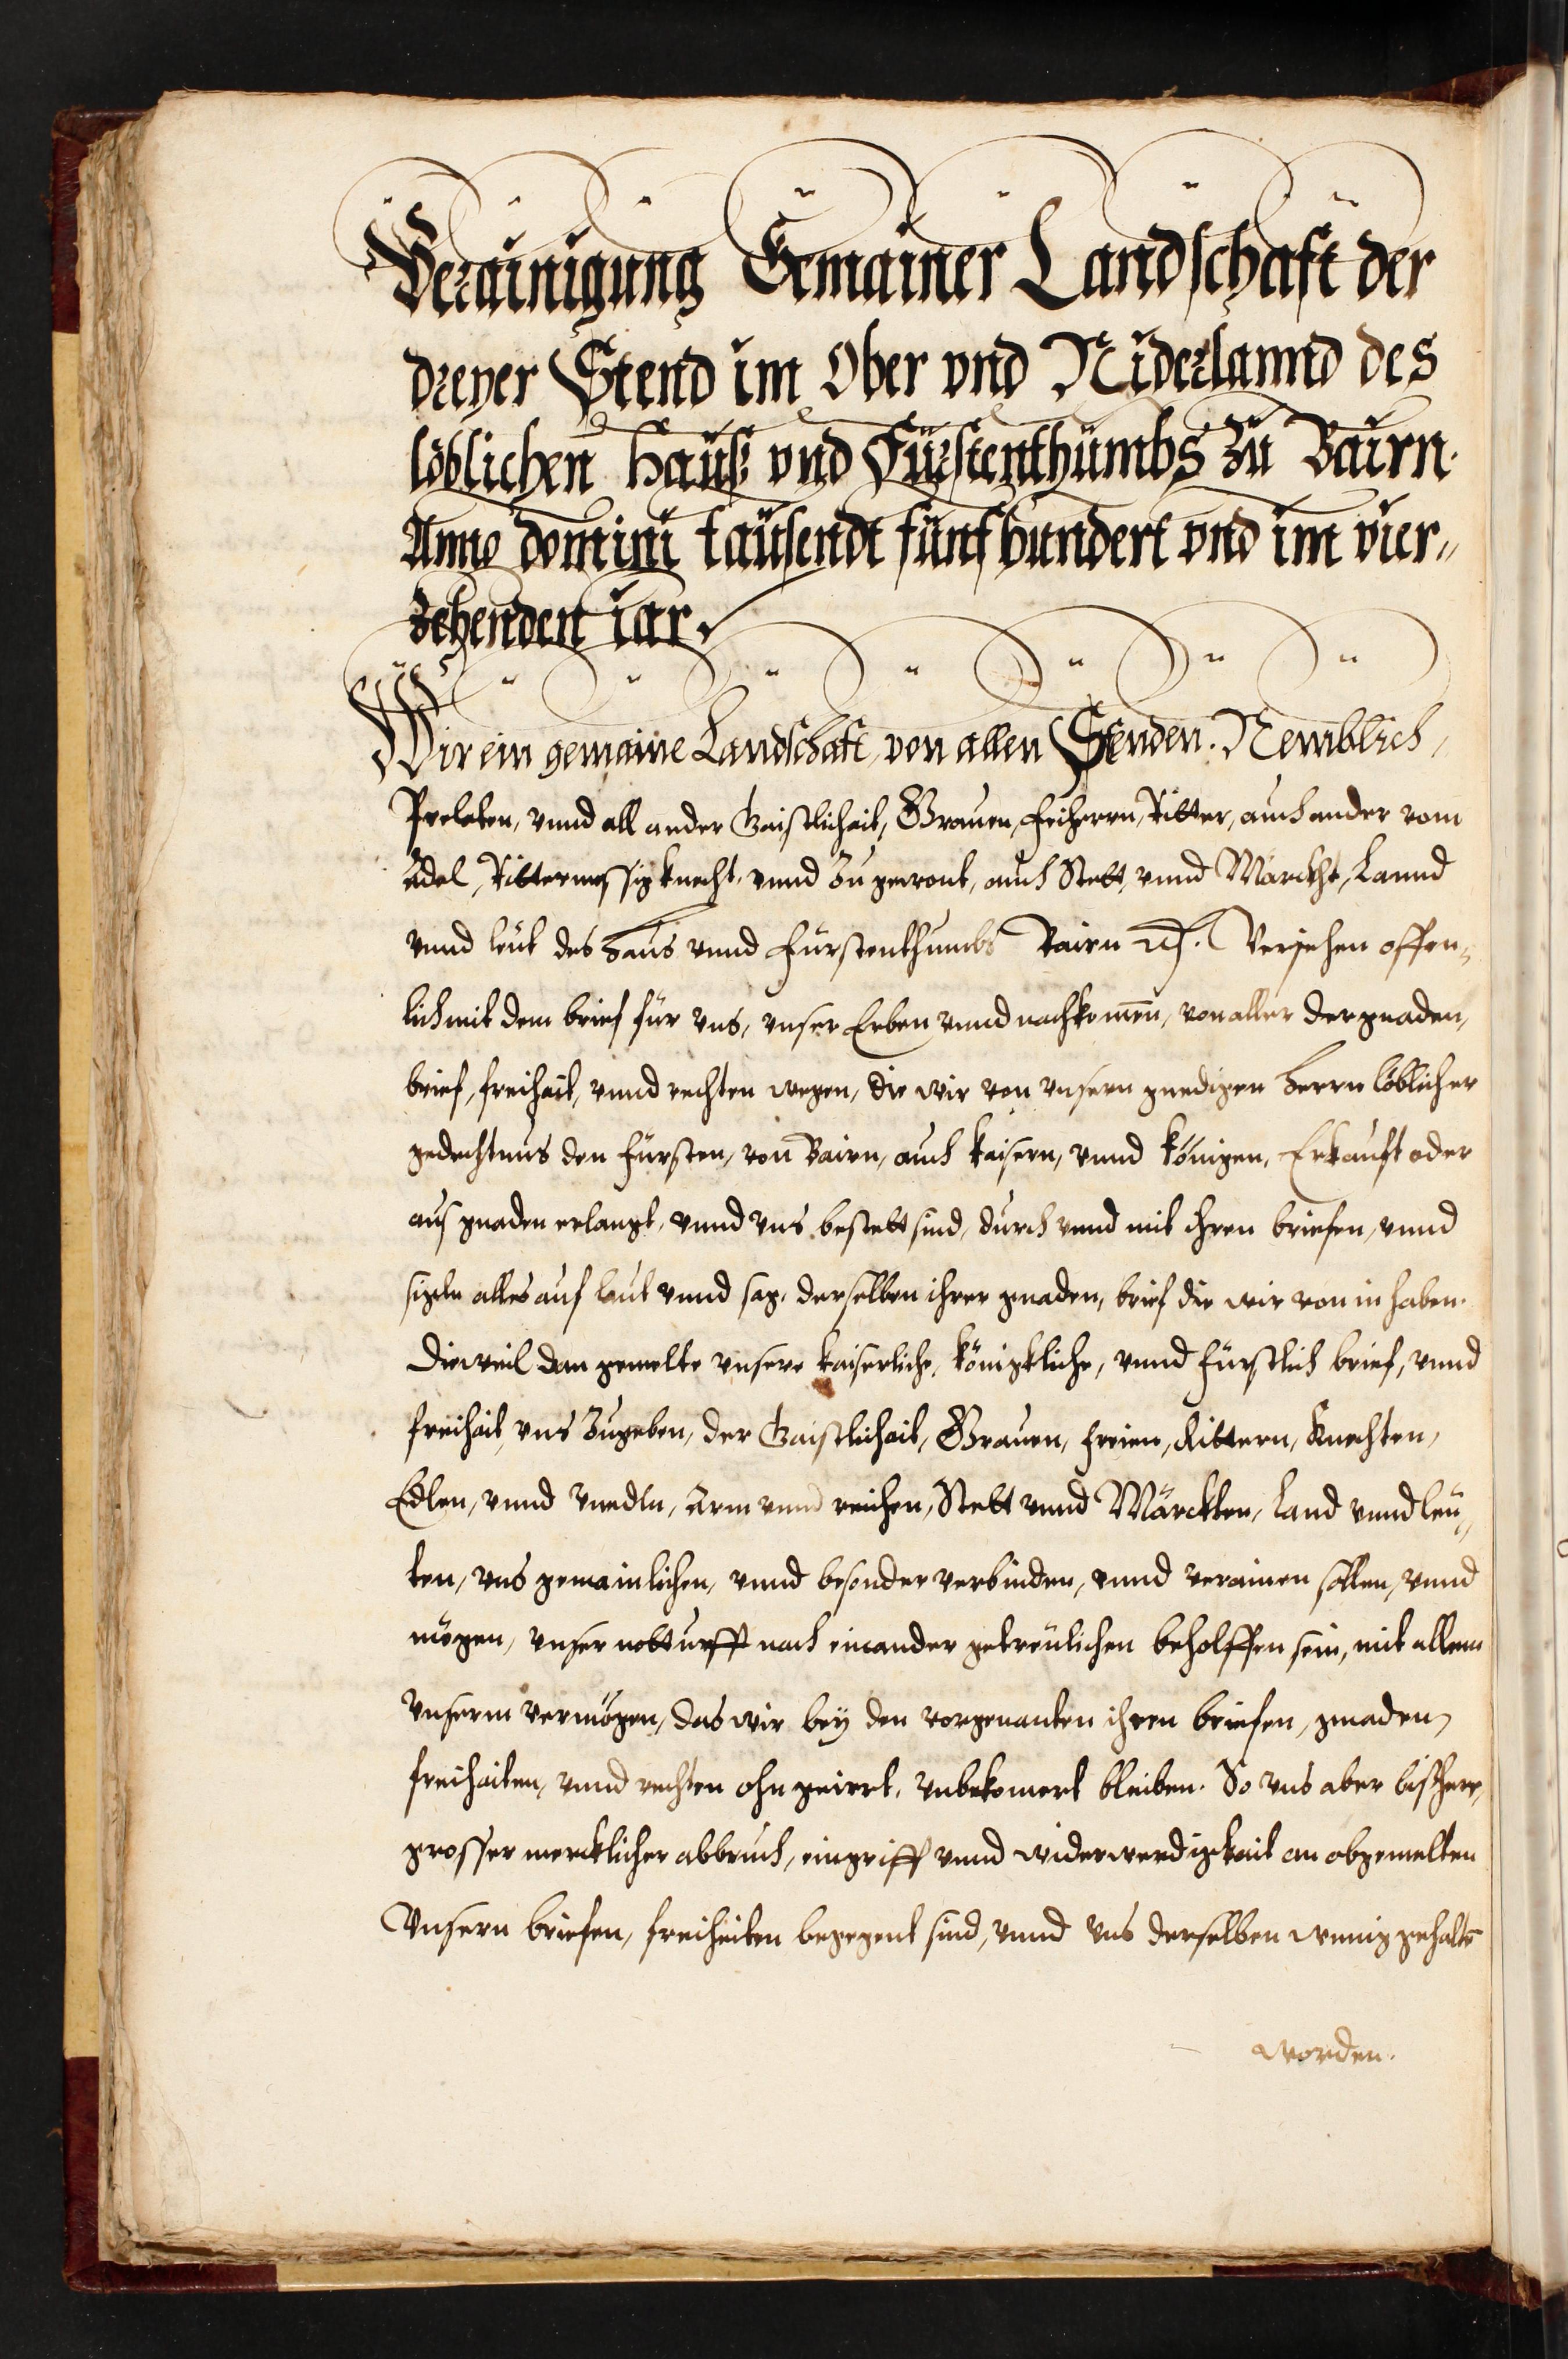 Verainigung Gemainer Landschaft der
dreyer Stend im Ober vnd Niderlannd des
löblichen hauß vnd Fürstenthumbs zu Bairn.
Anno domini tausendt fünfhundert vnd im vier„
zehenden iar.
Wir ein gemaine Landschaft, von allen Stenden. Nemblich,
Prelaten, vnnd all ander Gaistlichait, Grauen, freiherrn, Ritter, auch ander vom
Adel, Rittermessig knecht, vnnd zugewont, auch Stett, vnnd Märckht, Lannd
vnnd leut des haus vnnd fürstenthumbs Bairn etc. Veriehen offen„
lich mit dem brief für vns, vnser Erben vnnd nachkomen, von aller der gnaden,
brief, freihait, vnnd rechten wegen, die wir von vnsern gnedigen herrn löblicher
gedechtnus den fürsten, von Bairn, auch kaisern, vnnd königen, Erkauft oder
aus gnaden erlangt, vnnd vns bestett sind, durch vnnd mit ihren briefen, vnnd
sigeln alles auf laut vnnd sag, derselben ihrer gnaden, brief die wir von in haben.
Dieweil dan gemelte vnsere kaiserliche, königkliche, vnnd fürstlich brief, vnnd
freihait, vns zugeben, der Gaistlichait, Grauen, freien, Rittern, Knechten,
Edlen, vnnd vnedln, Arm vnnd reichen, Stett vnnd Märckten, land vnnd leu„
ten, vns gemainlichen, vnnd besonder verbinden, vnnd verainen sollen, vnnd
mögen, vnser notturfft nach einander getreulichen beholffen sein, mit allem
vnserm vermögen, das wir bey den vorgenanten ihren briefen, gnaden,
freihaiten, vnnd rechten ohn geirrt, vnbekomert bleiben. So vns aber bisher,
grosser mercklicher abbruch, eingriff vnnd widerwerdigkait an obgemelten
Vnsern briefen, freiheiten begegent sind, vnnd vns derselben wenig gehaltē
worden.